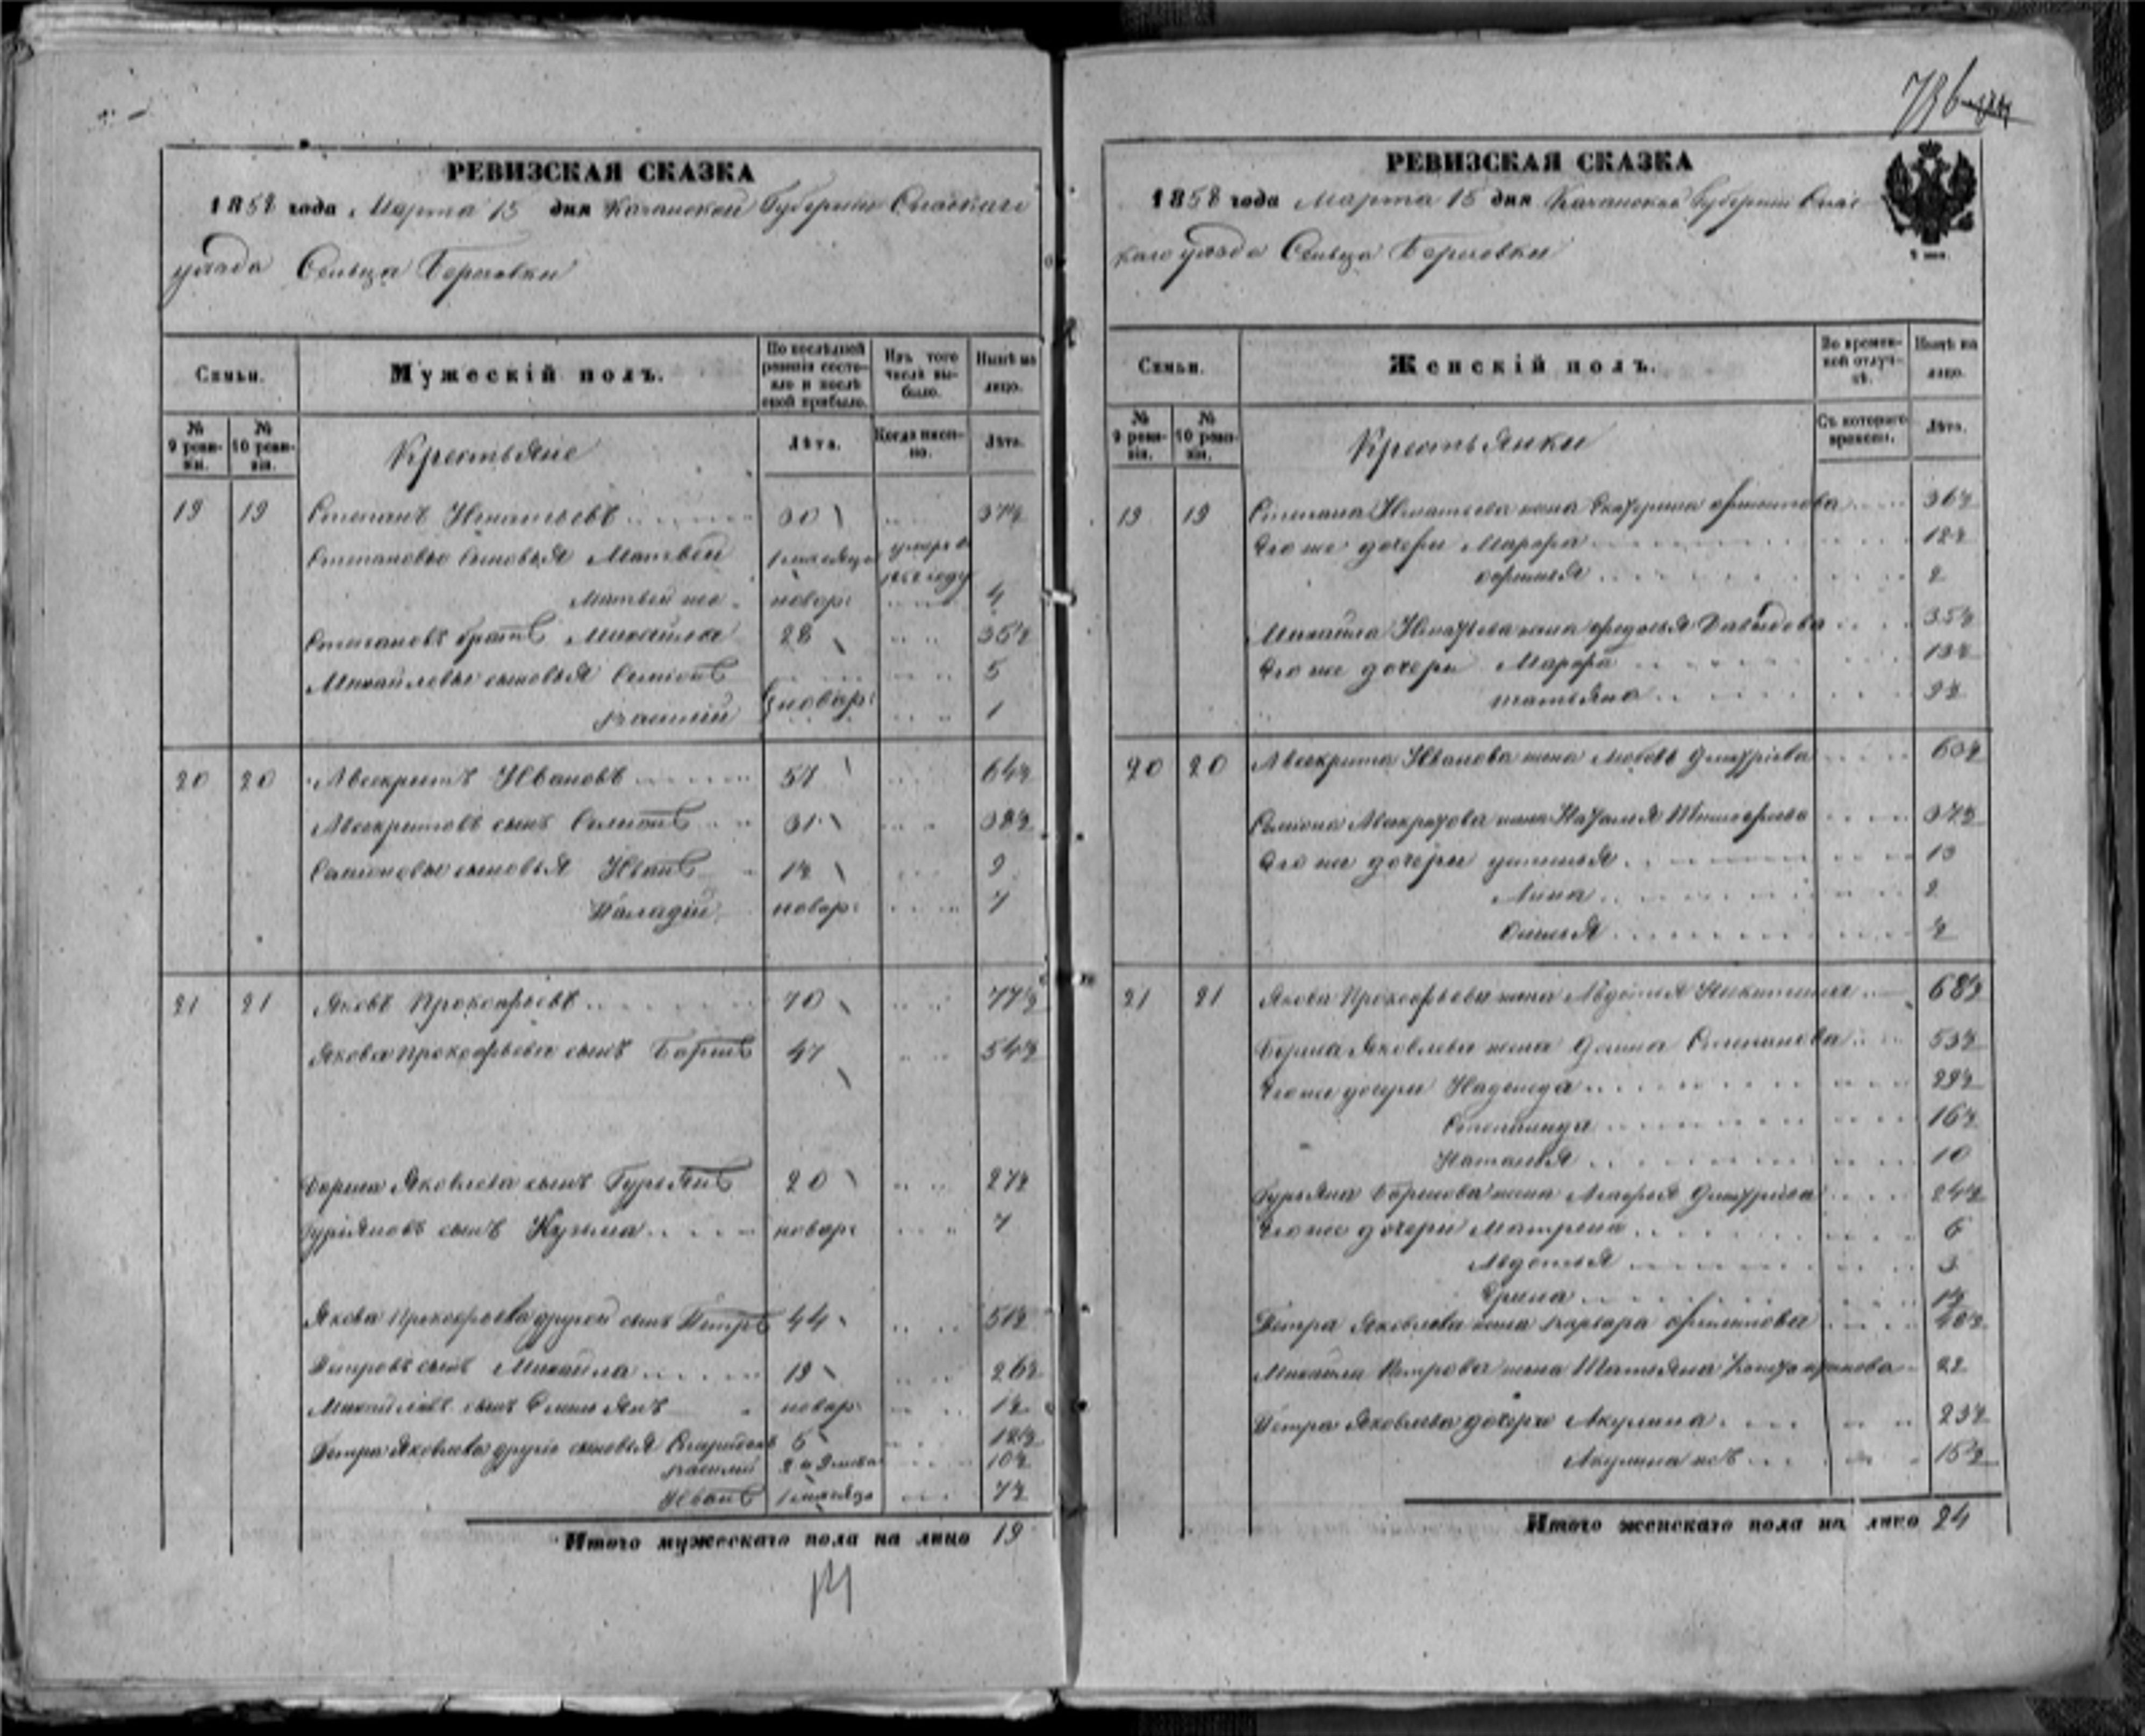 736
РЕВИЗСКАЯ СКАЗКА
1858 года Марта 15 дня Казанской Губернии Спаскаго
уезда Сельца Борисовки
Семьи.
Мужескій полъ.
По послѣдней ревизіи состояло и послѣ оной прибыло.
Изъ того числа выбыло.
Нынѣ на лицо.
№ 9 ревизіи.
№ 10 ревизіи.
Крестьяне
Лѣта.
Когда именно.
Лѣта.
19 19 Степанъ Игнатьевъ 30 37½
Степановы сыновья Матвей 1 месяца умеръ в году
Матвей новор: 4
Степановъ братъ Михайла 28 35½
Михайловы сыновья Семионъ 5
василий новор: 1
20 20 Авскритъ Ивановъ 57 64½
Авскритовъ сынъ Семионъ 31 38½
Семионовы сыновья Иванъ 1½ 9
Паладiй новор: 7
21 21 Яковъ Прокофьевъ 70 77½
Якова Прокофьева сынъ Борисъ 47 54½
Бориса Яковлева сынъ Гурьянъ 20 27½
Гурьяновъ сынъ Кузьма новор: 7
Якова Прокофьева другой сынъ Петръ 44 51½
Петровъ сынъ Михайла 19 26½
Михайловъ сынъ Емельянъ новор: 1½
Петра Яковлева другие сыновья Спиридонъ 5 12½
василий 10½
Иванъ 1 месяца 7½
Итого мужескаго пола на лицо 19
РЕВИЗСКАЯ СКАЗКА
1858 года Марта 15 дня Казанской Губернии Спас
каго уезда Сельца Борисовки
Семьи.
Женскій полъ.
Во временной отлучкѣ.
Нынѣ на лицо.
№ 9 ревизіи.
№ 10 ревизіи.
Крестьянки
Съ котораго времени.
Лѣта.
19 19 Степана Игнатьева жена Екатерина 36½
Его же дочери Марфа 12½
2
Михайла Игнатьева жена Федосья Давыдова 35½
Его же дочери Марфа 13½
татьяна 9½
20 20 Авскрита Иванова жена Любовь Дмитриева 60½
Семиона Авскритова жена Наталья Тимофеева 37½
Его же дочери устинья 13
Анна
21 21 Якова Прокофьева жена Авдотья Никитина 68½
Бориса Яковлева жена Домна Степанова 53½
Его же дочери Надежда 22½
Степанида 16½
Наталья 10
Гурьяна Борисова жена Агафья Дмитриева 24½
Его же дочери Матрена 6
Авдотья 3
Ирина 1½
Петра Яковлева жена варвара
Михайла Петрова жена Татьяна 22
Петра Яковлева дочери Акулина 23½
Акулина 15½
Итого женскаго пола на лицо 24